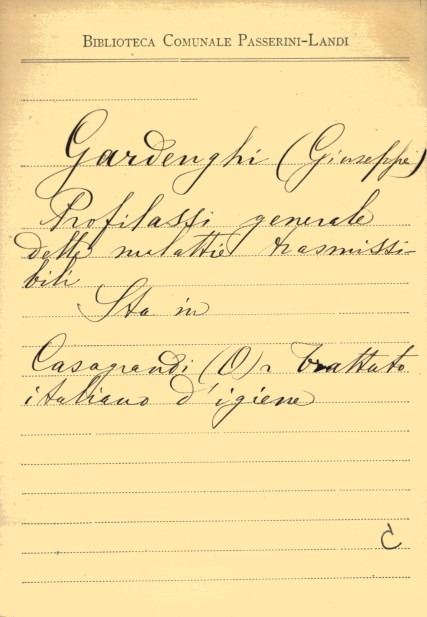 BIBLIOTECA COMUNALE PASSERINI-LANDI
Gardenghi (Giuseppe)
Profilassi generale
delle malattie trasmissi-
bili
Sta in
Casagrandi (O) Trattato
italiano d'igiene
C